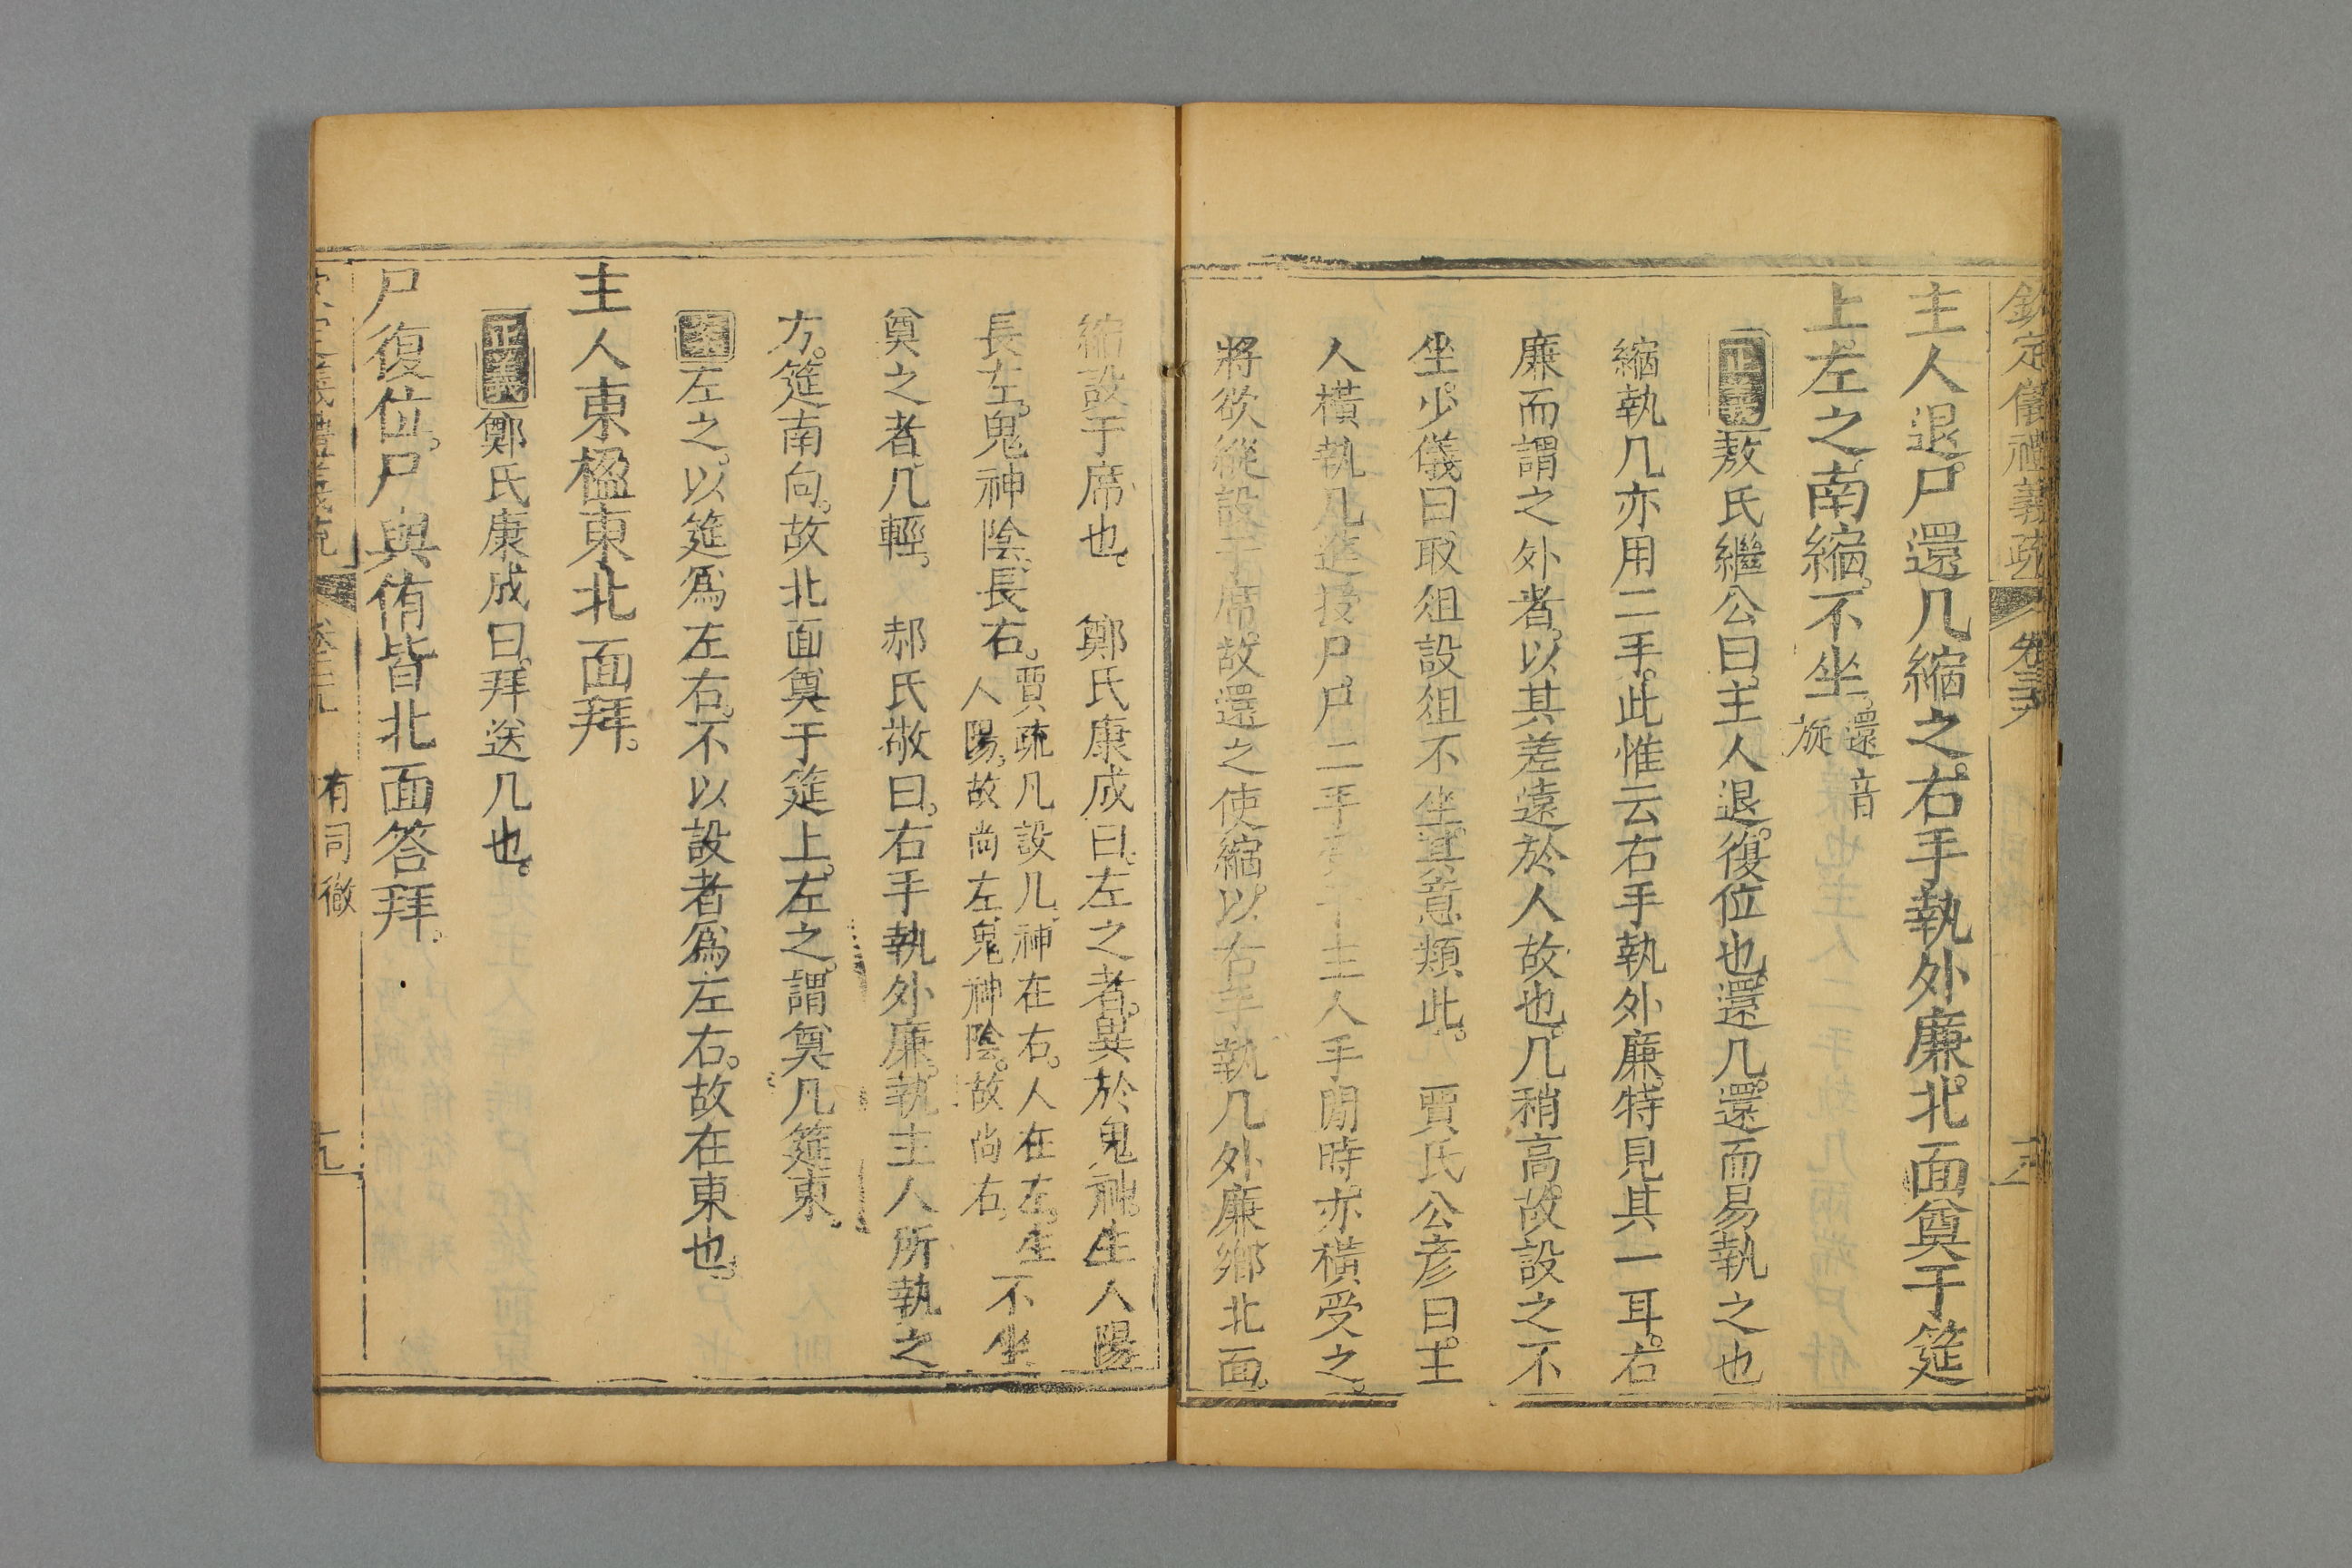 欽定儀禮義疏 卷三
主人退。尸還几縮之。右手執外廉。北面奠于筵
上。左之。南縮。不坐。還音旋
正義敖氏繼公曰。主人退。復位也。還几。還而易執之也
縮執几亦用二手。此惟云右手執外廉。特見其一耳。右
廉而謂之外者。以其差遠於人故也。几稍高。故設之不
坐。少儀曰。取俎設俎不坐。其意類此。 賈氏公彥曰。主
人橫執几進授尸。尸二手受于主人手閒時。亦橫受之。
將欲縱設于席。故還之使縮。以右手執几外廉。鄉北面。
縮設于席也。 鄭氏康成曰。左之者。異於鬼神。生人陽
長左。鬼神陰。長右。賈疏凡設几。神在右。人在左。生人陽。故尚左。鬼神陰。故尚右。不坐
奠之者。几輕。 郝氏敬曰。右手執外廉。執主人所執之
方。筵南向。故北面奠于筵上。左之。謂奠几筵東。
案左之。以筵爲左右。不以設者爲左右。故在東也。
主人東楹東北面拜。
正義鄭氏康成曰。拜送几也。
尸復位。尸與侑皆北面答拜。
有司徹